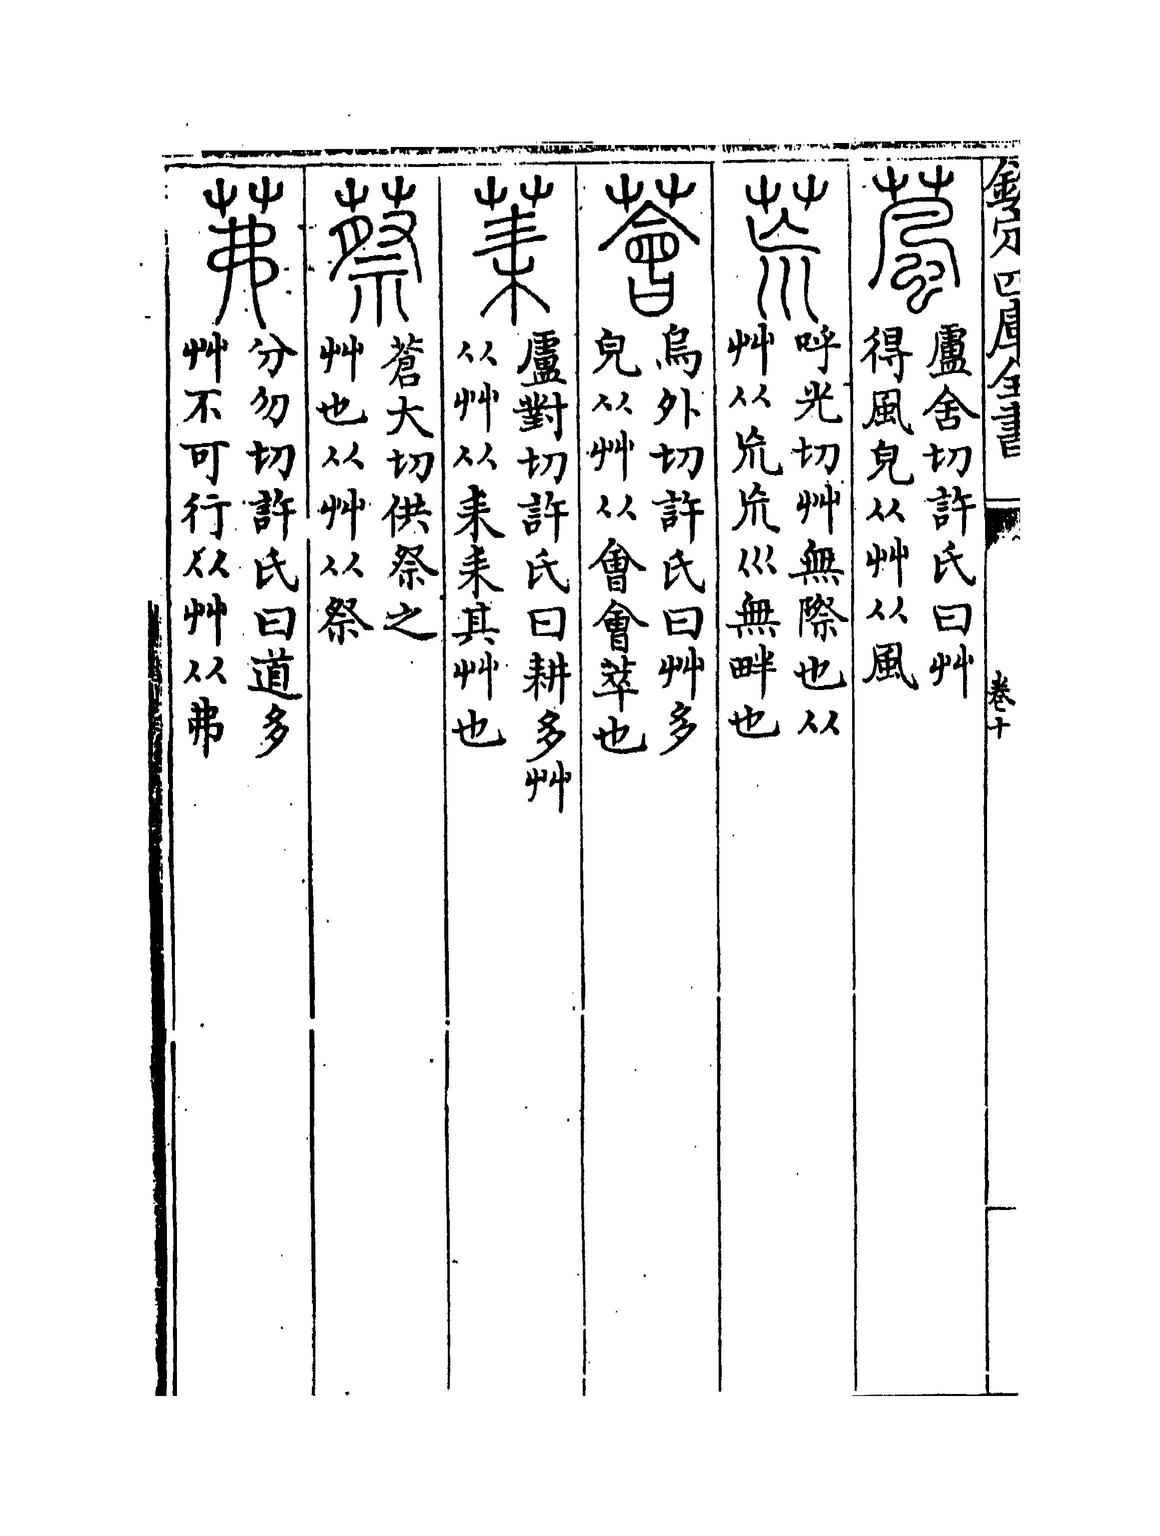 欽定四庫全書
卷十
葻
盧含切許氏曰艸
得風皃从艸从風
巟
呼光切艸無際也从
艸从巟巟巛無畔也
薈
烏外切許氏曰艸多
皃从艸从會會萃也
茦
盧對切許氏曰耕多艸
从艸从耒耒其艸也
蔡
蒼大切供祭之
艸也从艸从祭
茀
分勿切許氏曰道多
艸不可行从艸从弗